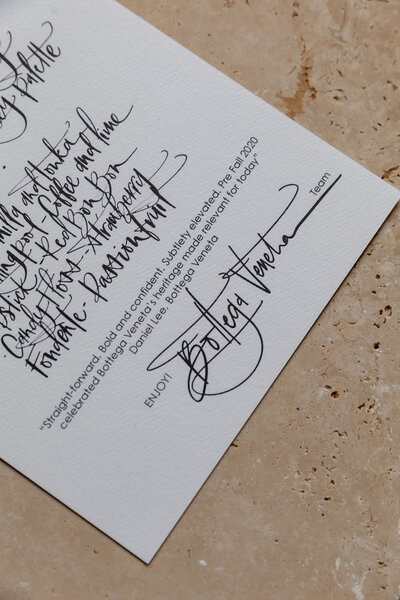 Palette
and Tonka
Coffee and Lime
Red Bon Bon
Candy Floss - Strawberry
Fondante - Passionfruit
"Straight-forward. Bold and confident. Subtlety elevated. Pre Fall 2020
celebrated Bottega Veneta's heritage made relevant for today,"
Daniel Lee, Bottega Veneta
ENJOY!
Bottega Veneta Team